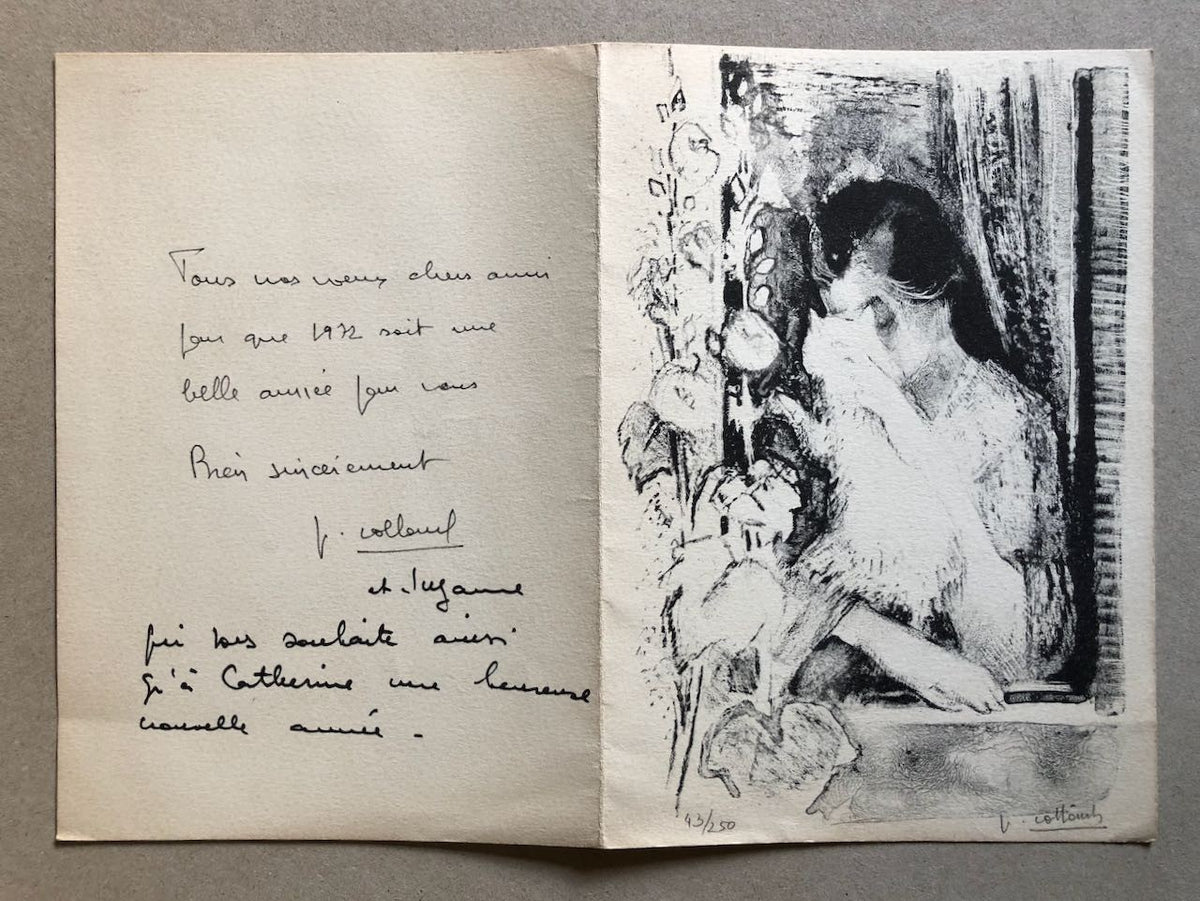 Tous nos vœux chers amis
pour que 1972 soit une
belle année pour vous
Bien sincèrement
p. collomb
et Suzanne
qui vous souhaite ainsi
qu'à Catherine une heureuse
nouvelle année.
43/250
p. collomb